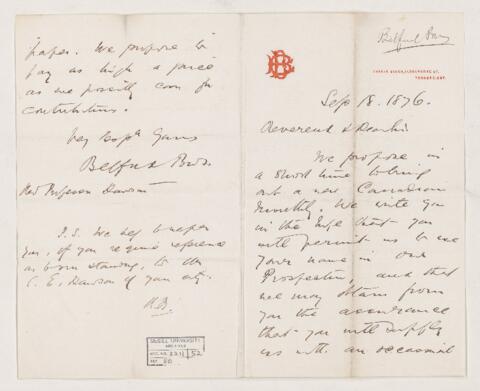 Belford Bros
Sep 18. 1876.
Reverend & Dear Sir
We propose in
a short time to bring
out a new Canadian
Monthly. We write you
in the hope that you
will permit us to use
your name in our
Prospectus, and that
we may obtain from
you the assurance
that you will supply
us with an occasional
paper. We propose to
pay as high a price
as we possibly can for
contributions.
Very Resply Yours
Belford Bros.
Rev Professor Dawson
P.S. We beg to refer
you, if you require reference
as to our standing, to Mr
C. E. Dawson of your city.
B.B.
McGILL UNIVERSITY
ARCHIVES
ACC. NO. 2211
REF.